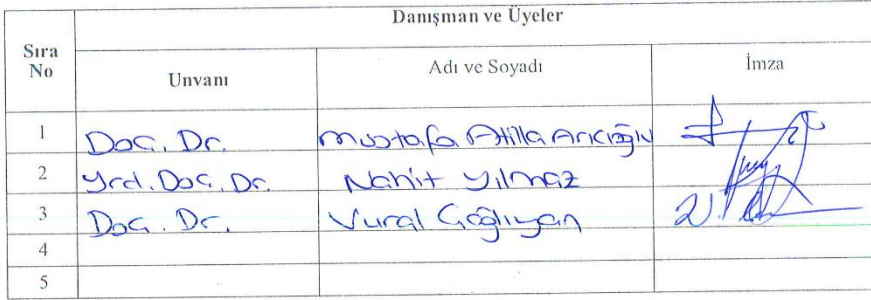 Danışman ve Üyeler
Sıra No Unvanı Adı ve Soyadı İmza
1 Doç. Dr. Mustafa Atilla Arıcıoğlu
2 Yrd. Doç. Dr. Nahit Yılmaz
3 Doç. Dr. Vural Çağlıyan
4
5